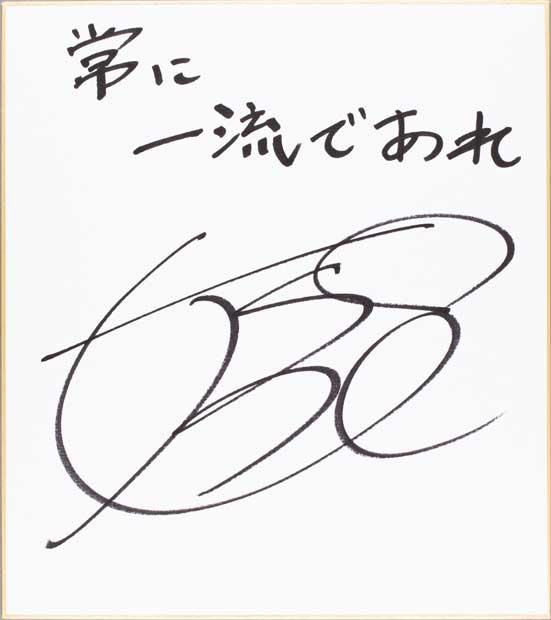 常に
一流であれ